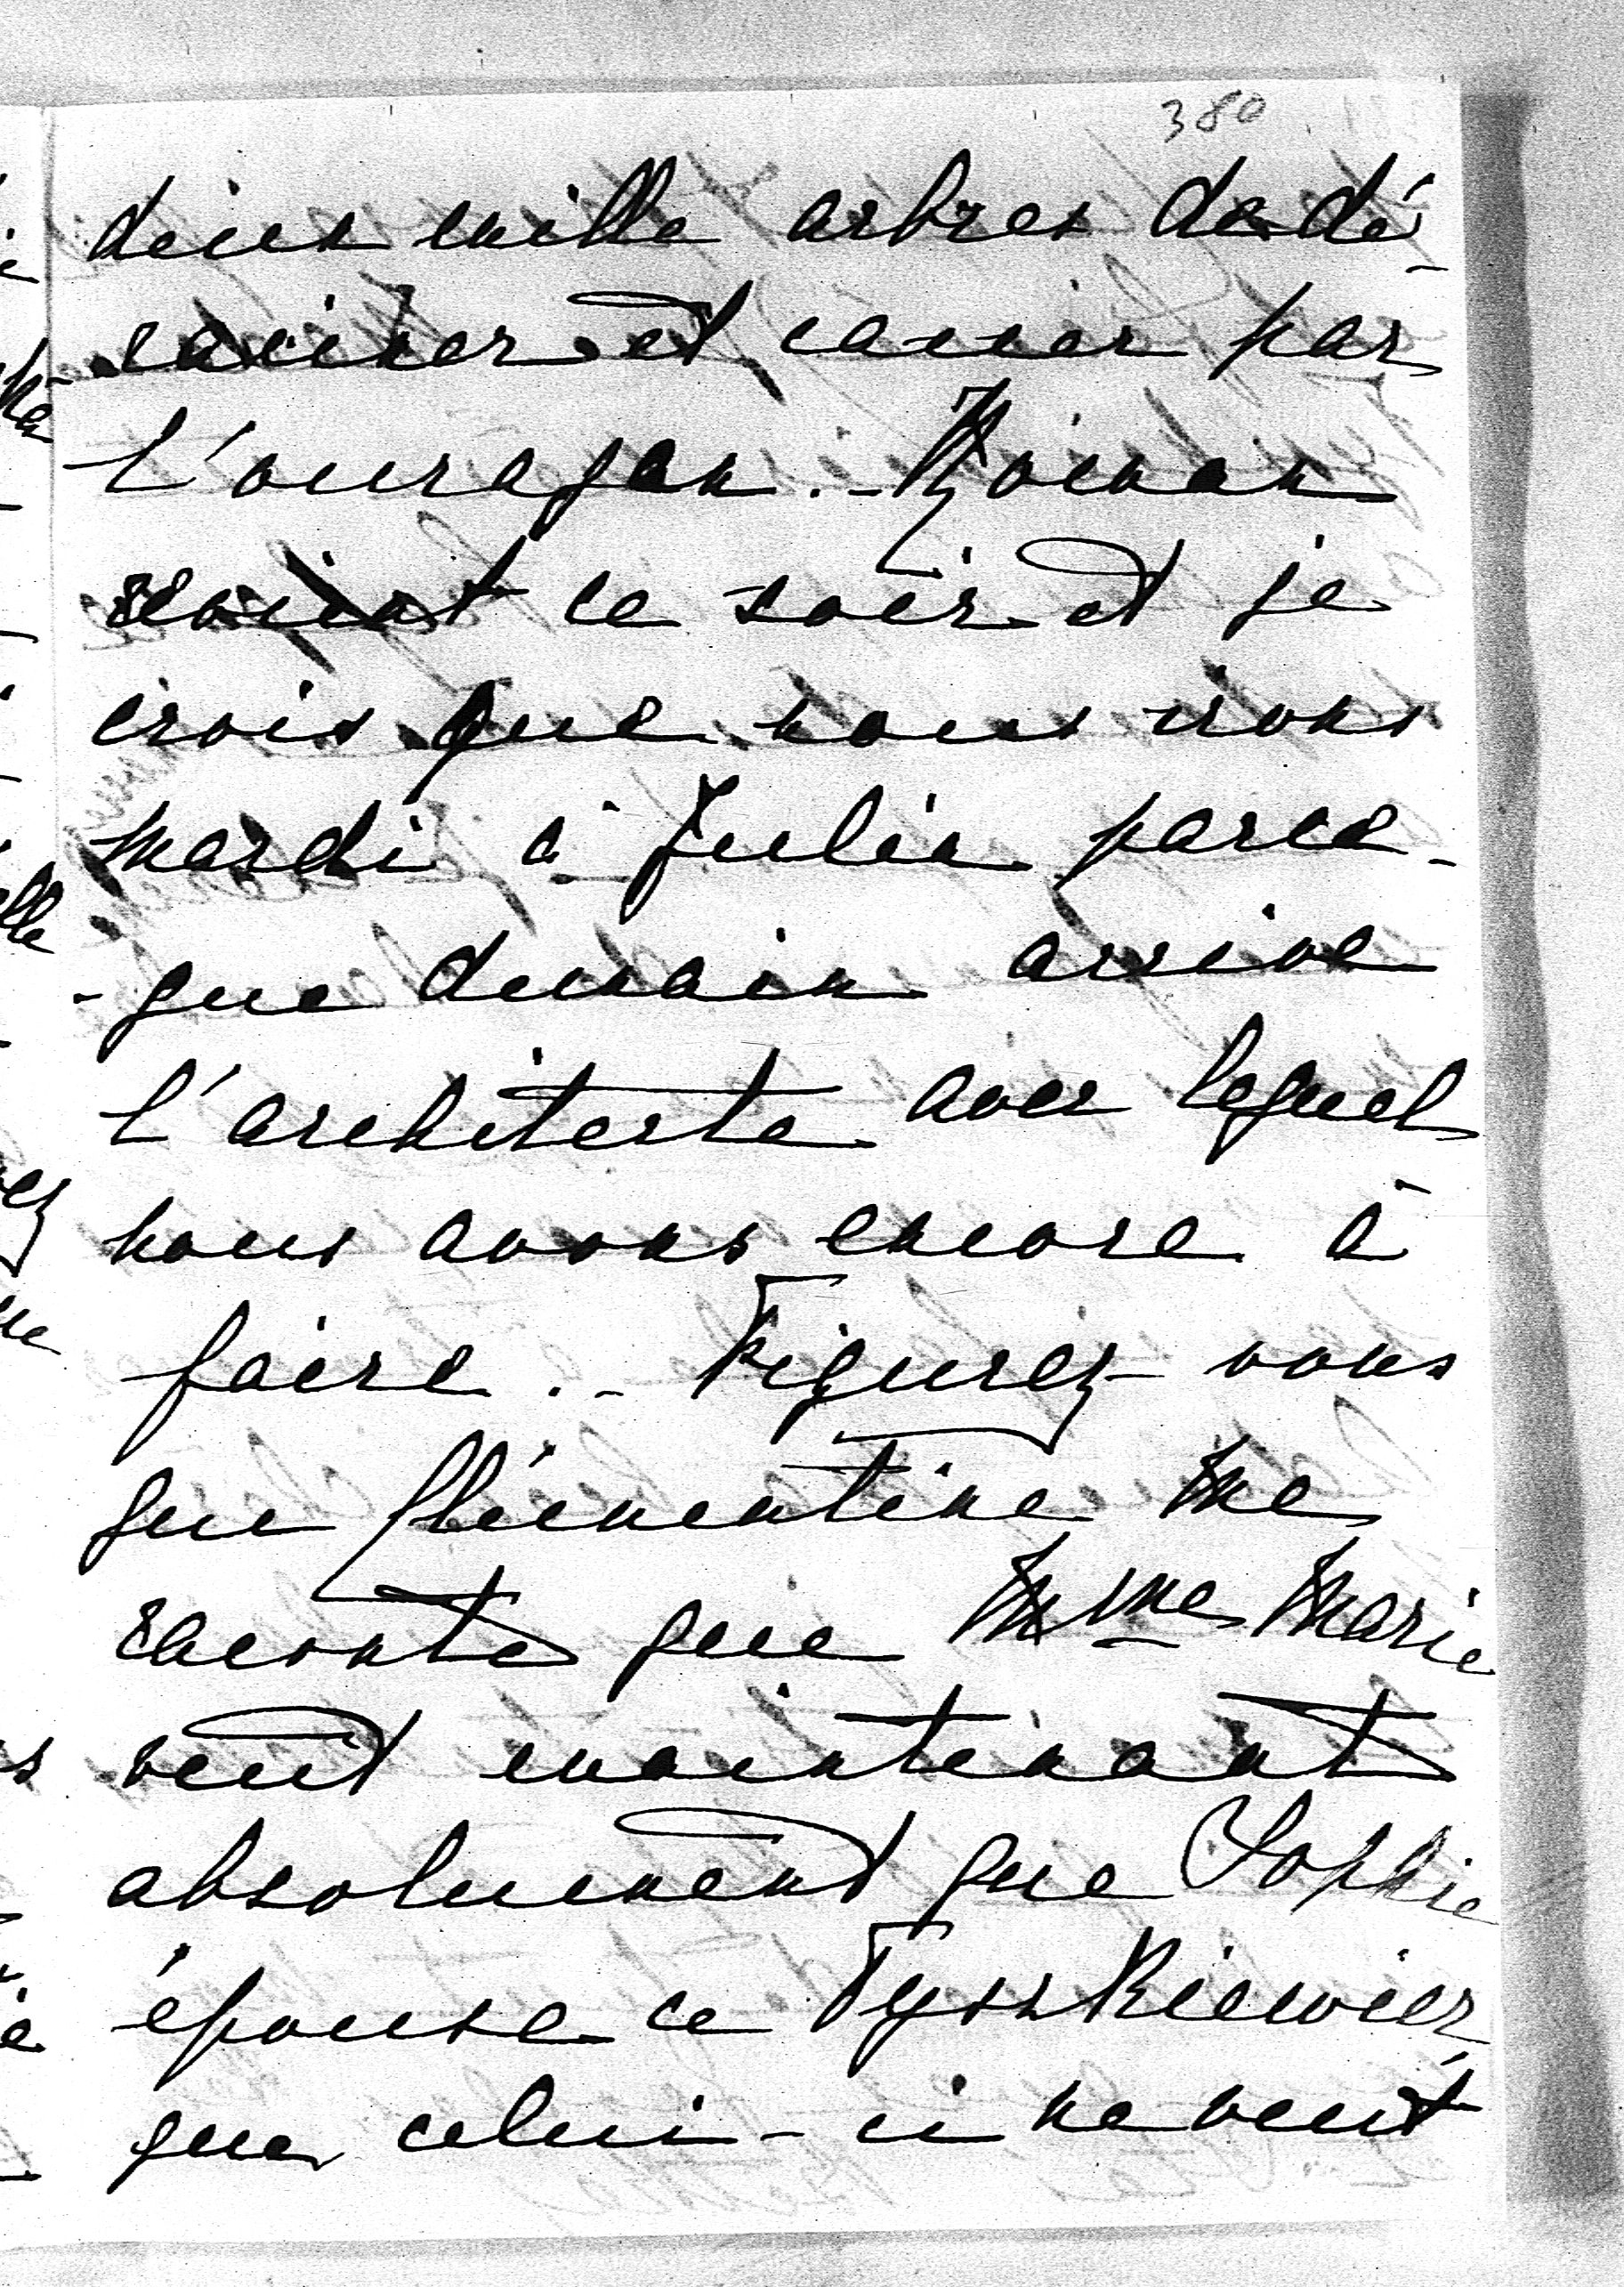 380
deux mille arbres de dé-
raciner et casser par
l'ouragan.- Roman
revient ce soir et je
crois que nous irons
mardi à Julin parce-
-que demain arrive
l'architecte avec lequel
nous avons encore à
faire.- Figurez-vous
que Clémentine me
raconte que Mme Marie
veut maintenant
absolument que Sophie
épouse ce Tyszkiewicz
que celui-ci ne veut